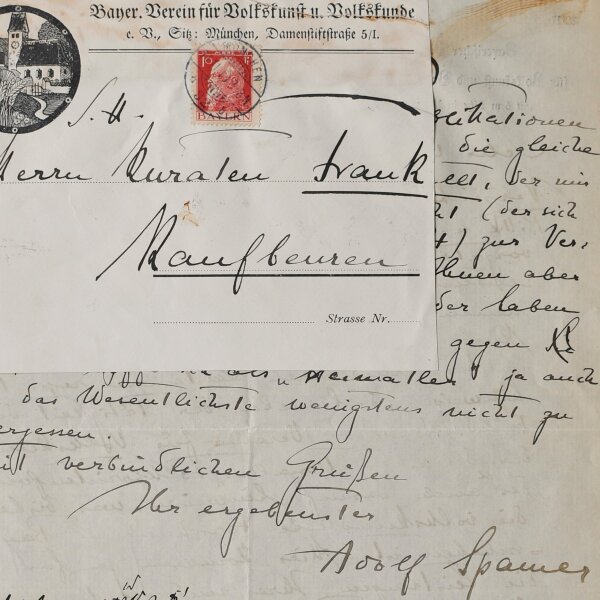 Bayer. Verein für Volkskunst u. Volkskunde
e. V., Sitz: München, Damenstiftstraße 5/I.
MÜNCHEN
10
BAYERN
S. H.
Herrn Kuraten Frank
Kaufbeuren
Strasse Nr.
die gleiche
der mir
(der sich
zur Ver-
Ihnen aber
der laben
gegen
als „Heimatler" ja auch
das Wesentlichste wenigstens nicht zu
verbindlichen Grüßen
Ihr ergebenster
Adolf Spamer